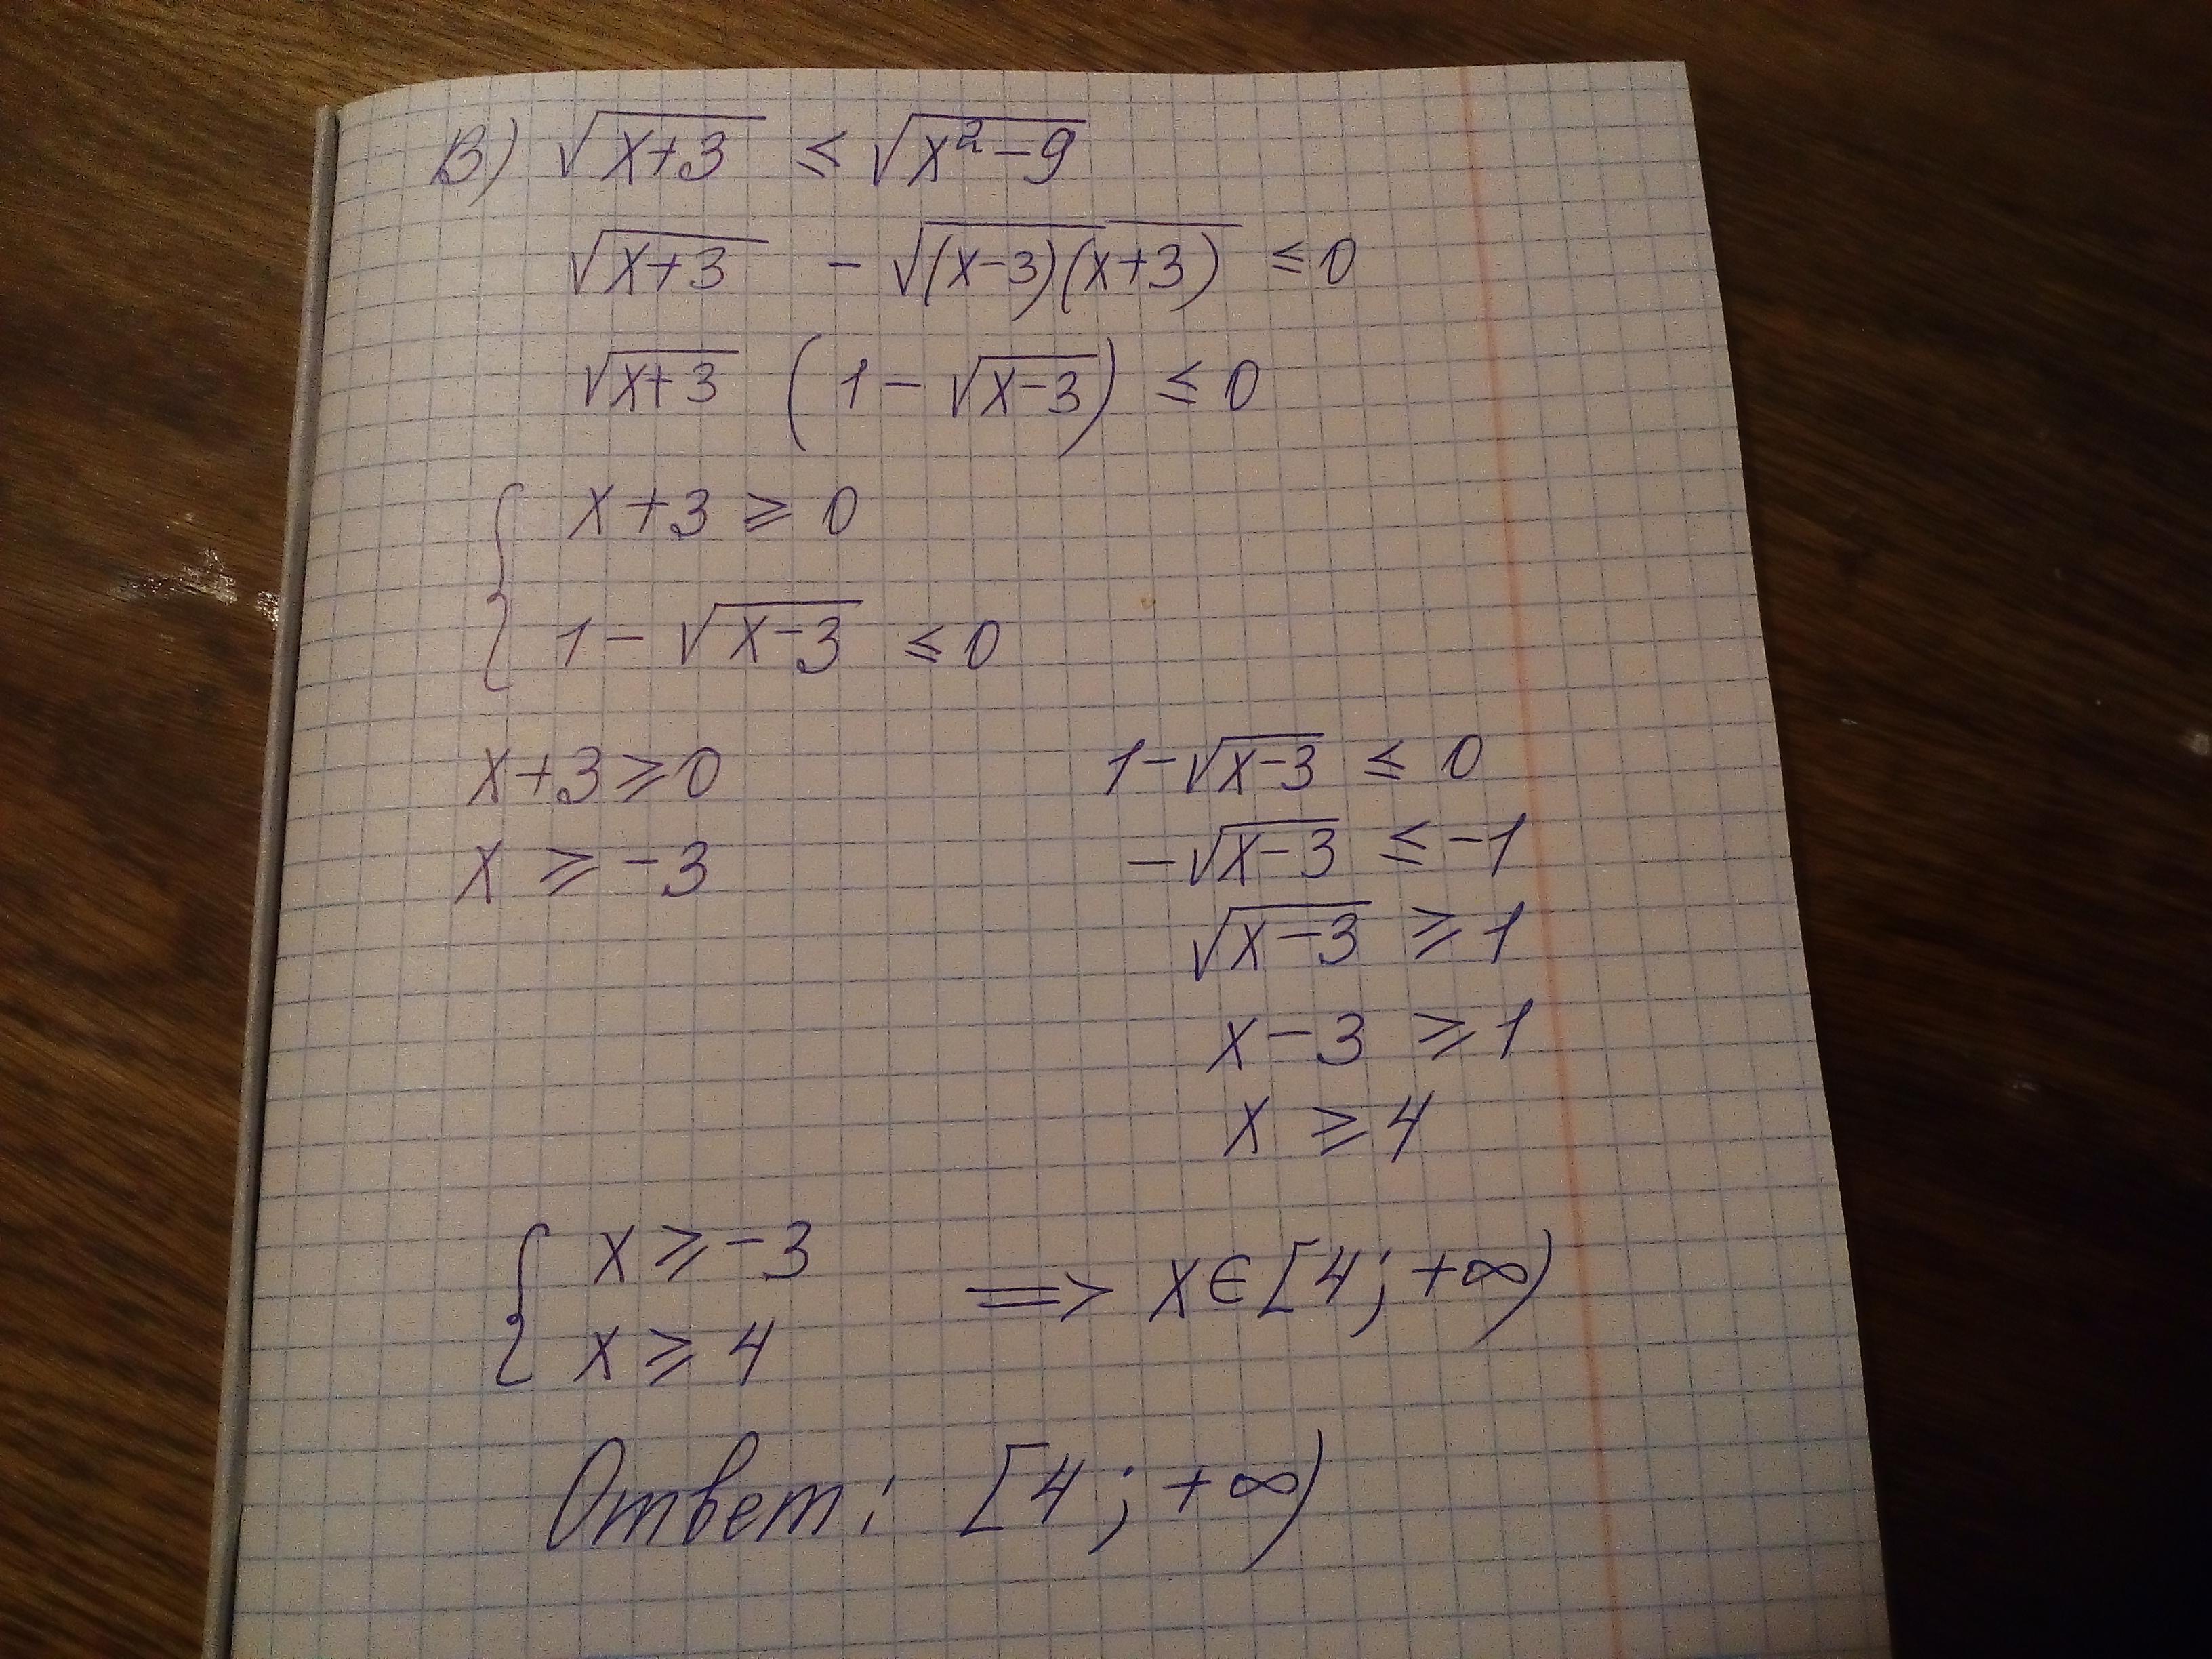 В) √(x+3) ≤ √(x²-9)
√(x+3) - √((x-3)(x+3)) ≤ 0
√(x+3) (1 - √(x-3)) ≤ 0
{ x+3 ≥ 0
1 - √(x-3) ≤ 0
x+3 ≥ 0
x ≥ -3
1 - √(x-3) ≤ 0
-√(x-3) ≤ -1
√(x-3) ≥ 1
x-3 ≥ 1
x ≥ 4
{ x ≥ -3
x ≥ 4
=> x ∈ [4; +∞)
Ответ: [4; +∞)